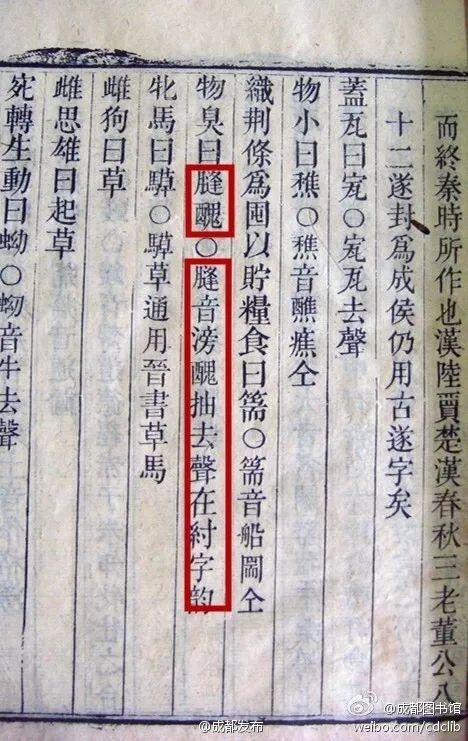 而終秦時所作也漢陸賈楚漢春秋三老董公八
十二遂封爲成侯仍用古遂字矣
蓋瓦曰宽○宽瓦去聲
物小曰穛○穛音醮癄仝
織荆條爲囤以貯糧食曰篅○篅音船圌仝
物臭曰膖醜○膖音滂醜抽去聲在紂字韵
牝馬曰騲○騲草通用晉書草馬
雌狗曰草
雌思雄曰起草
宛轉生動曰蚴○蚴音牛去聲
@成都发布
@成都图书馆
weibo.com/cdclib